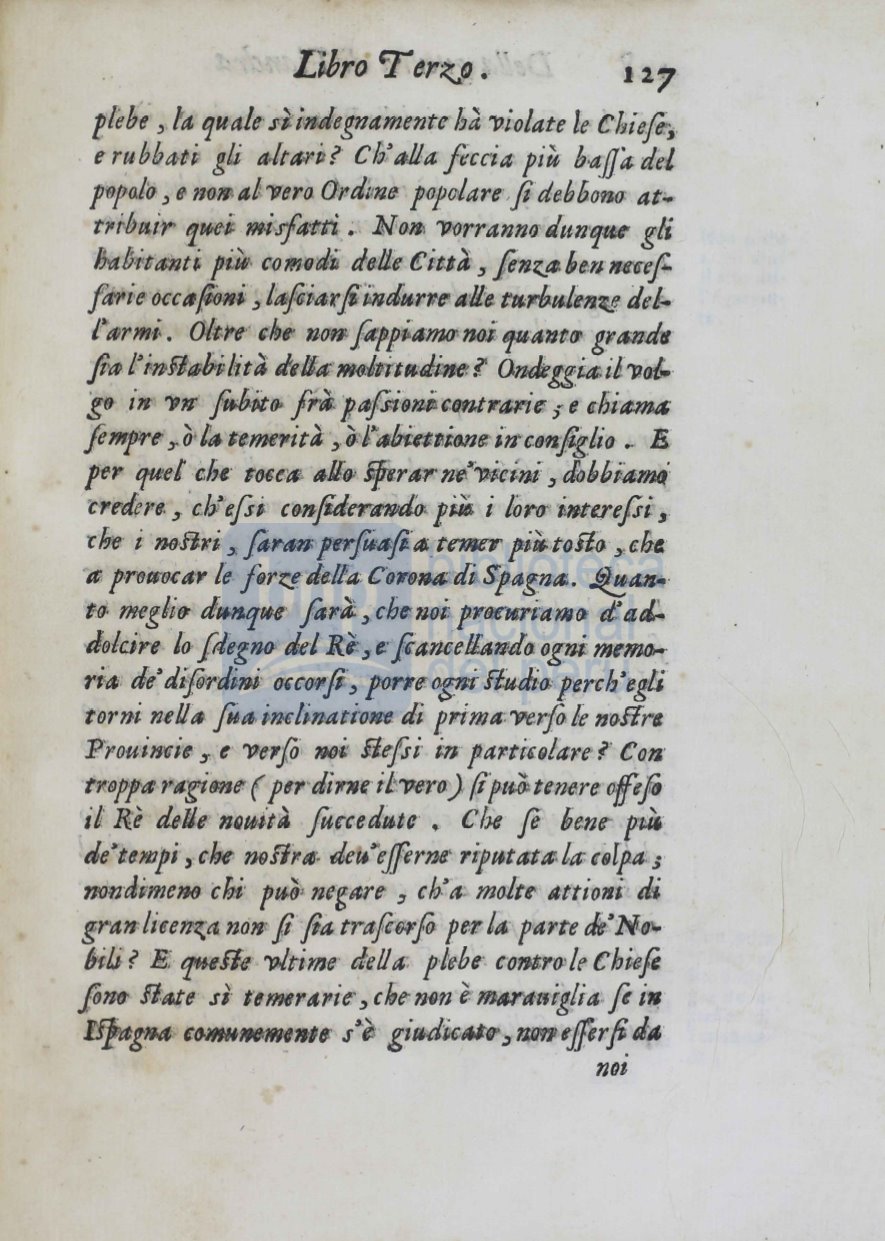 Libro Terzo. 127
plebe, la quale sì indegnamente hà violate le Chieſe,
e rubbati gli altari? Ch'alla feccia più baſſa del
popolo, e non al vero Ordine popolare ſi debbono at-
tribuir quei misfatti. Non vorranno dunque gli
habitanti più comodi delle Città, ſenza ben neceſ-
ſarie occaſioni, laſciarſi indurre alle turbulenze del-
l'armi. Oltre che non ſappiamo noi quanto grande
ſia l'inſtabilità della moltitudine? Ondeggia il vol-
go in vn ſubito frà paſsioni contrarie; e chiama
ſempre, ò la temerità, ò l'abiettione in conſiglio. E
per quel che tocca allo ſperar ne'vicini, dobbiamo
credere, ch'eſsi conſiderando più i loro intereſsi,
che i noſtri, ſaran perſuaſi a temer più toſto, che
a prouocar le forze della Corona di Spagna. Quan-
to meglio dunque ſarà, che noi procuriamo d'ad-
dolcire lo ſdegno del Rè, e ſcancellando ogni memo-
ria de'diſordini occorſi, porre ogni ſtudio perch'egli
torni nella ſua inclinatione di prima verſo le noſtre
Prouincie, e verſo noi ſteſsi in particolare? Con
troppa ragione (per dirne il vero) ſi può tenere offeſo
il Rè delle nouità ſuccedute. Che ſe bene più
de'tempi, che noſtra deu'eſſerne riputata la colpa;
nondimeno chi può negare, ch'a molte attioni di
gran licenza non ſi ſia traſcorſo per la parte de'No-
bili? E queſte vltime della plebe contro le Chieſe
ſono ſtate sì temerarie, che non è marauiglia ſe in
Iſpagna comunemente s'è giudicato, non eſſerſi da
noi
biblioteca
nacional
del perú